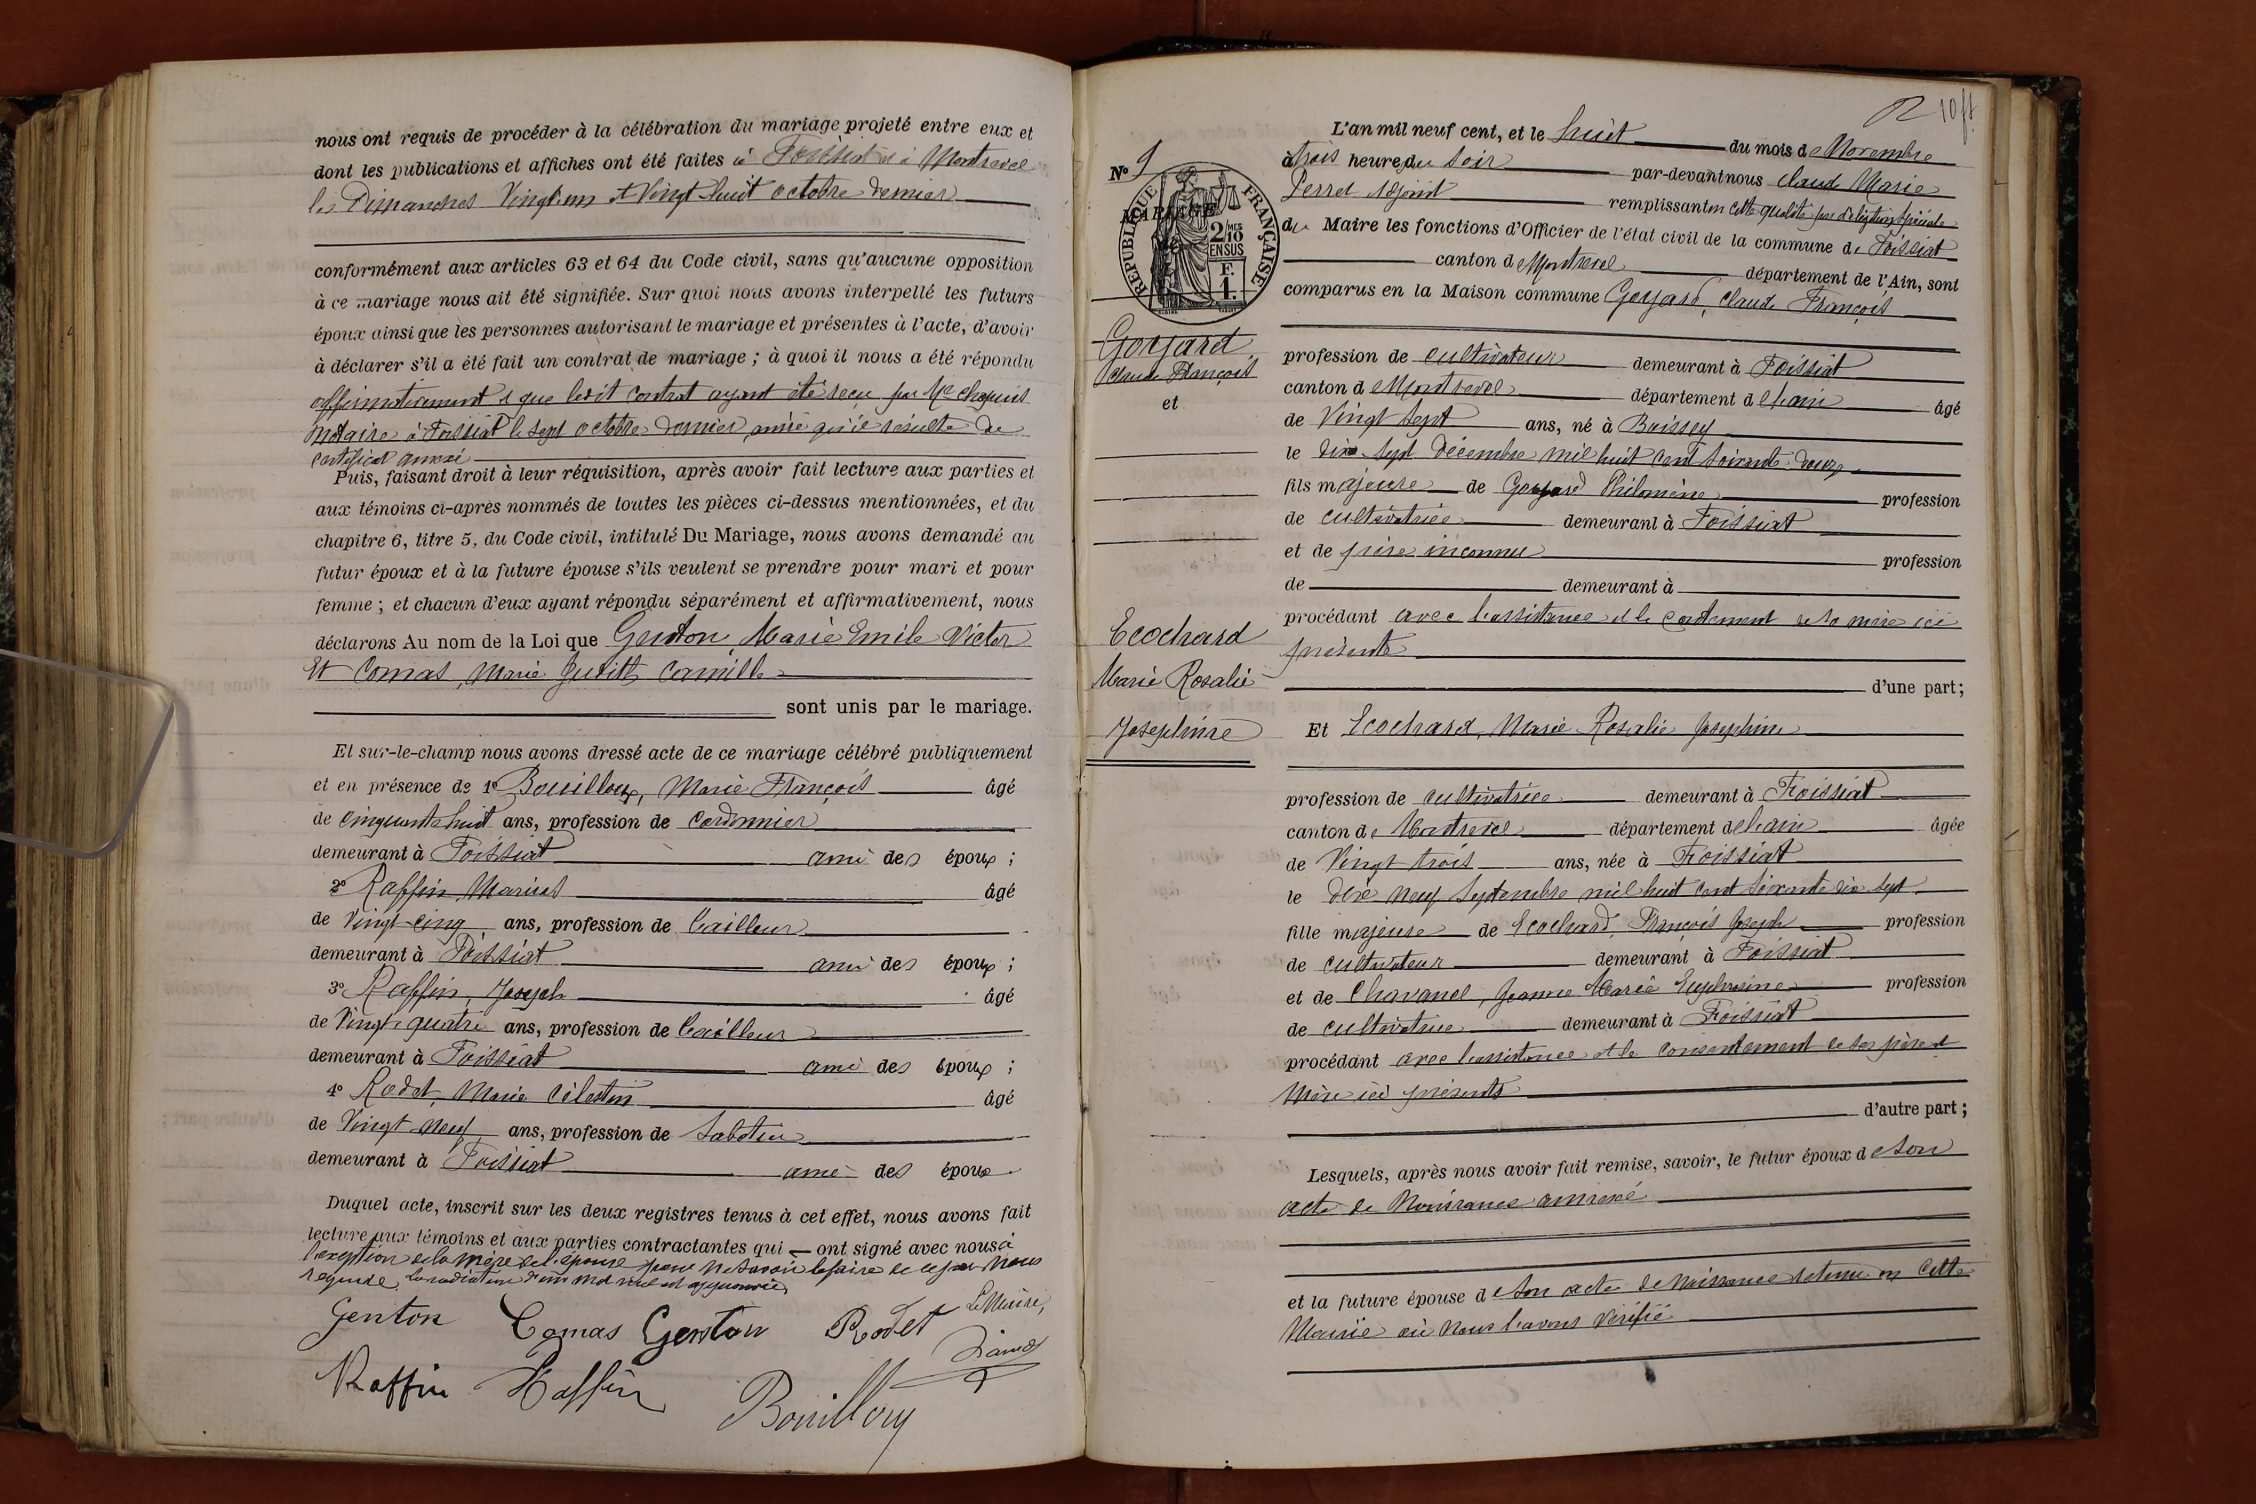 nous ont requis de procéder à la célébration du mariage projeté entre eux et
dont les publications et affiches ont été faites à Foissiat et à Montrevel
les Dimanches Vingt un et Vingt huit octobre dernier
conformément aux articles 63 et 64 du Code civil, sans qu'aucune opposition
à ce mariage nous ait été signifiée. Sur quoi nous avons interpellé les futurs
époux ainsi que les personnes autorisant le mariage et présentes à l'acte, d'avoir
à déclarer s'il a été fait un contrat de mariage ; à quoi il nous a été répondu
affirmativement et que ledit contrat ayant été reçu par Me
notaire à Foissiat le sept octobre dernier, ainsi qu'il résulte du
certificat annexé
Puis, faisant droit à leur réquisition, après avoir fait lecture aux parties et
aux témoins ci-après nommés de toutes les pièces ci-dessus mentionnées, et du
chapitre 6, titre 5, du Code civil, intitulé Du Mariage, nous avons demandé au
futur époux et à la future épouse s'ils veulent se prendre pour mari et pour
femme ; et chacun d'eux ayant répondu séparément et affirmativement, nous
déclarons Au nom de la Loi que Genton, Marie Emile Victor
Et Comas, Marie Judith Camille
sont unis par le mariage.
Et sur-le-champ nous avons dressé acte de ce mariage célébré publiquement
et en présence de 1° Bouilloux, Marie François âgé
de cinquante huit ans, profession de Cordonnier
demeurant à Foissiat ami des époux ;
2° Raffin, Marius âgé
de Vingt-cinq ans, profession de tailleur
demeurant à Foissiat ami des époux ;
3° Raffin, Joseph âgé
de Vingt quatre ans, profession de tailleur
demeurant à Foissiat ami des époux ;
4° Rodet, Marie Célestin âgé
de Vingt neuf ans, profession de Sabotier
demeurant à Foissiat ami des époux
Duquel acte, inscrit sur les deux registres tenus à cet effet, nous avons fait
lecture aux témoins et aux parties contractantes qui — ont signé avec nous à
l'exception de la mère de l'épouse pour ne savoir le faire de ce par nous
requise. La radiation d'un mot nul est approuvée
Genton Comas Genton Rodet Le Maire,
Raffin Raffin Bouilloux
10
N° 9
MARIAGE
RÉPUBLIQUE FRANÇAISE
2/10 MES
EN SUS
F.
1.
Goyard
Claude François
et
Ecochard
Marie Rosalie
Josephine
L'an mil neuf cent, et le huit du mois de Novembre
à trois heures du soir par-devant nous Claude Marie
Perret Adjoint remplissant en cette qualité par délégation spéciale
du Maire les fonctions d'Officier de l'état civil de la commune de Foissiat
canton de Montrevel département de l'Ain, sont
comparus en la Maison commune Goyard, Claude François
profession de cultivateur demeurant à Foissiat
canton de Montrevel département de l'ain âgé
de Vingt sept ans, né à Boissey
le dix sept Décembre mil huit cent soixante douze
fils majeure de Goyard Philomène profession
de cultivatrice demeurant à Foissiat
et de père inconnu profession
de demeurant à
procédant avec l'assistance et le consentement de sa mère ici
présente
d'une part ;
Et Ecochard, Marie Rosalie Josephine
profession de cultivatrice demeurant à Foissiat
canton de Montrevel département de l'ain âgée
de Vingt trois ans, née à Foissiat
le dix neuf Septembre mil huit cent soixante dix sept
fille majeure de Ecochard, François Joseph profession
de cultivateur demeurant à Foissiat
et de Chavanel, Jeanne Marie Euphrosine profession
de cultivatrice demeurant à Foissiat
procédant avec l'assistance et le consentement de ses père et
Mère ici présents
d'autre part ;
Lesquels, après nous avoir fait remise, savoir, le futur époux de son
acte de Naissance annexé
et la future épouse de son acte de Naissance retenu en cette
Mairie où nous l'avons vérifié